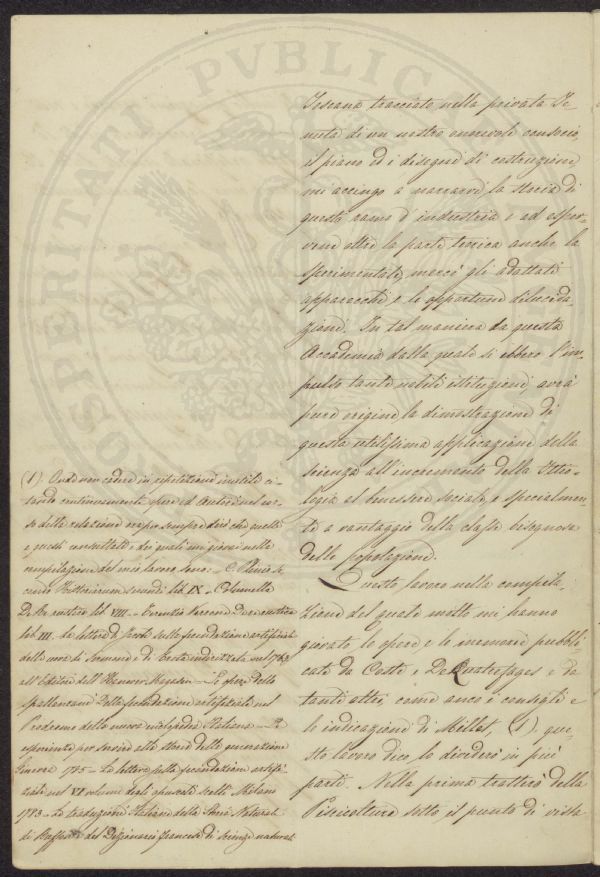 Toscana tracciato nella privata Te
nuta di un nostro onorevole consocio,
il piano ed i disegni di costruzione
mi accingo a narrarvi la storia di
questo ramo d'industria e ad espor-
vene oltre la parte teorica anche la
sperimentale, mercé gli adattati
apparecchi e le opportune dilucida-
zioni. In tal maniera da questa
Accademia dalla quale si ebbero l'im-
pulso tante nobili istituzioni, avrà
pure origine la dimostrazione di
questa utilissima applicazione della
scienza all'incremento della Ittio-
logia al benessere sociale, e specialmen-
te a vantaggio della classe bisognosa
delle popolazioni.
Questo lavoro nella compila-
zione del quale molto mi hanno
giovato le opere e le memorie pubbli-
cate da Coste e De Quatrefages e da
tanti altri, come anco i consigli e
le indicazioni di Millet, (1). que-
sto lavoro dico, lo dividerò in più
parti. Nella prima tratterò della
Piscicoltura sotto il punto di vista
(1) Onde non cadere in ripetizioni inutili ci-
tando continuamente opere ed Autori nel cor-
so della relazione
e questi consultati e dei quali mi giovai nella
compilazione del mio lavoro sono. - C. Plinio Se
cundo Historiarum mundi lib IX - Columella
De Re rustica lib VIII. - Terentio Varrone De re rustica
lib III. - La lettera di Jacobi sulla fecondazione artificiale
delle uova di Sermone e di Trota indirizzata nel 1763
all'Editore dell'Hanover Magazin - L'opera dello
Spallanzani Della fecondazione artificiale nel
Prodromo della nuova enciclopedia Italiana -
esperienze per servire alla storia della generazione
Ginevra 1785 - La lettera sulla fecondazione artifi-
ciale nel VI volume degli opuscoli scelti Milano
1783 - La traduzione Italiana della Storia Naturale
di Buffon e del Dizionario francese di scienze naturali
PVBLICAE